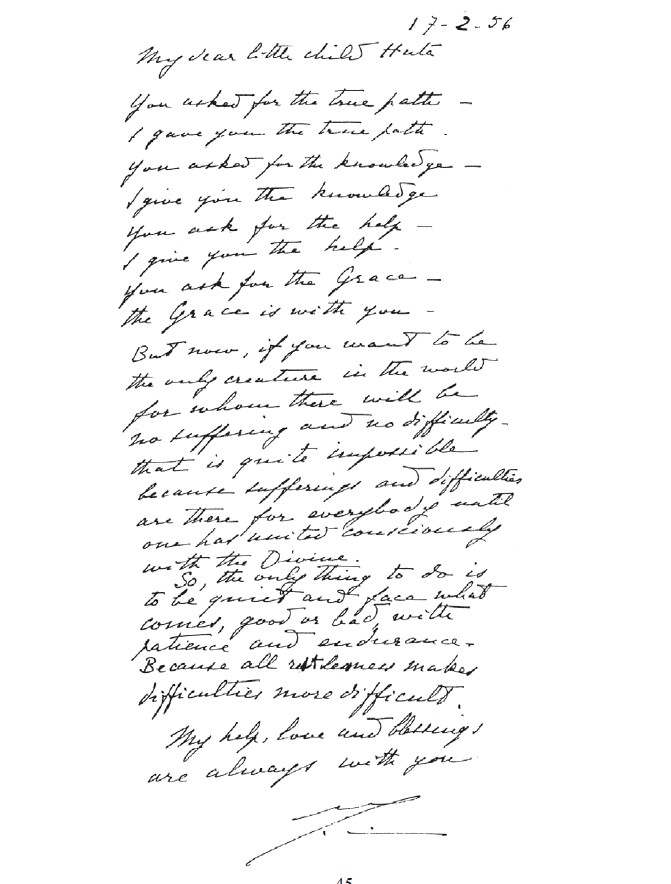 17-2-56
My dear little child Huta
You asked for the true path –
I gave you the true path.
You asked for the knowledge –
I give you the knowledge
You ask for the help –
I give you the help.
You ask for the Grace –
the Grace is with you –
But now, if you want to be
the only creature in the world
for whom there will be
no suffering and no difficulty –
that is quite impossible
because sufferings and difficulties
are there for everybody until
one has united consciously
with the Divine.
So, the only thing to do is
to be quiet and face what
comes, good or bad, with
patience and endurance.
Because all restlessness makes
difficulties more difficult.
My help, love and blessings
are always with you
45